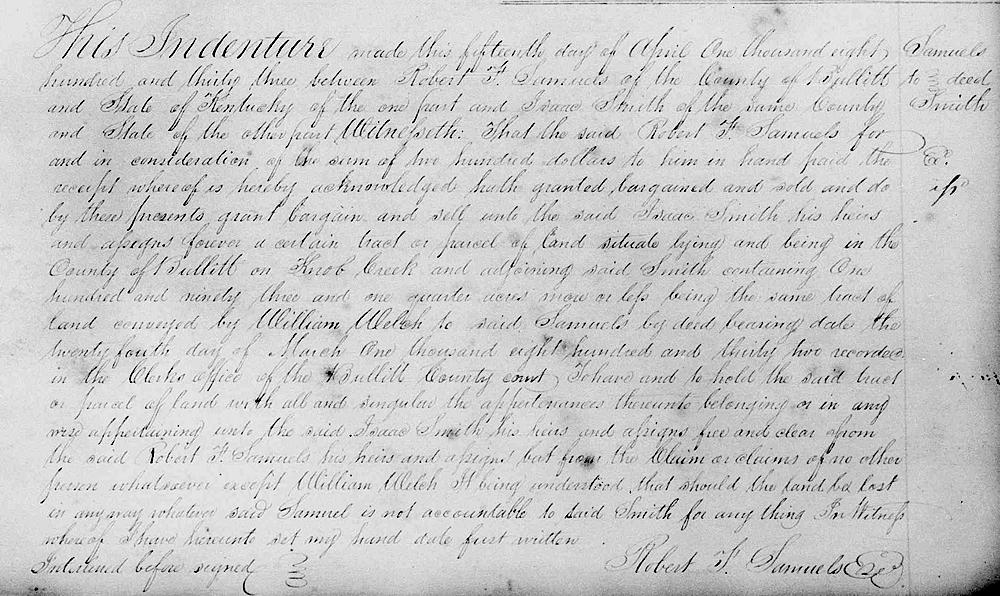 This Indenture made this fifteenth day of April One thousand eight
hundred and thirty three between Robert F. Samuels of the County of Bullitt
and State of Kentucky of the one part and Isaac Smith of the same County
and State of the other part Witnesseth: That the said Robert F. Samuels for
and in consideration of the sum of two hundred dollars to him in hand paid the
receipt whereof is hereby acknowledged hath granted bargained and sold and do
by these presents grant bargain and sell unto the said Isaac Smith his heirs
and assigns forever a certain tract or parcel of Land situate lying and being in the
County of Bullitt on Knob Creek and adjoining said Smith containing One
hundred and ninety three and one quarter acres more or less being the same tract of
land conveyed by William Welch to said Samuels by deed bearing date the
twenty fourth day of March One thousand eight hundred and thirty two recorded
in the Clerks office of the Bullitt County court To have and to hold the said tract
or parcel of land with all and singular the appertenances thereunto belonging or in any
wise appertaining unto the said Isaac Smith his heirs and assigns free and clear from
the said Robert F. Samuels his heirs and assigns but from the Claim or claims of no other
person whatsoever except William Welch It being understood that should the land be lost
in any way whatever said Samuel is not accountable to said Smith for any thing In Witness
whereof I have hereunto set my hand date first written
Interlined before signed
Robert F. Samuels
Samuels
to deed
Smith